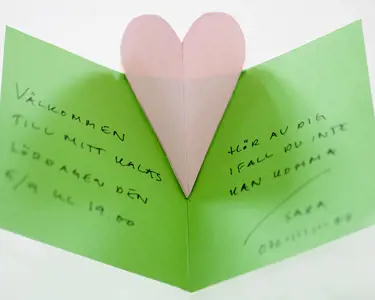 VÄLKOMMEN
TILL MITT KALAS
LÖRDAGEN DEN
5/9 KL 19.00
HÖR AV DIG
IFALL DU INTE
KAN KOMMA
SARA